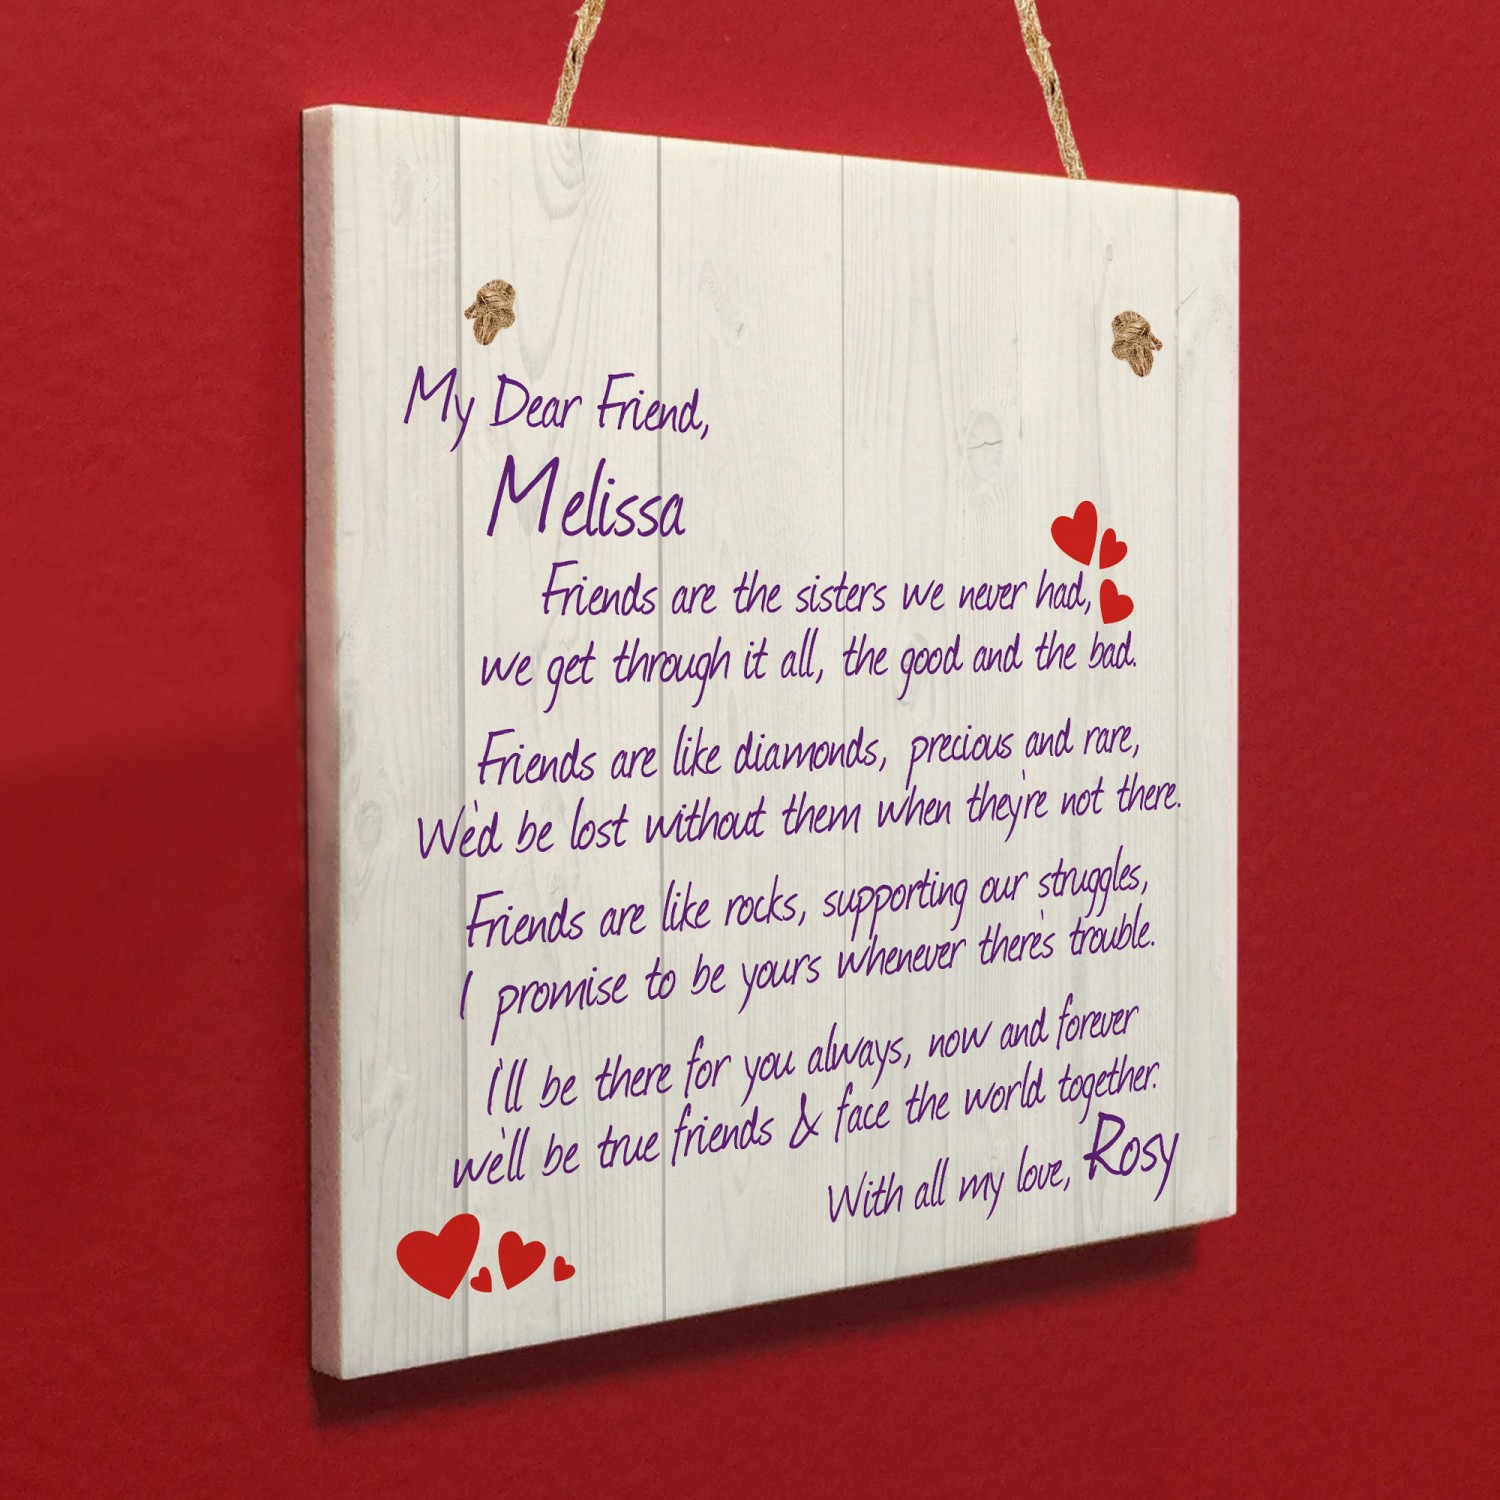 My Dear Friend,
Melissa
Friends are the sisters we never had,
we get through it all, the good and the bad.
Friends are like diamonds, precious and rare,
We'd be lost without them when they're not there.
Friends are like rocks, supporting our struggles,
I promise to be yours whenever there's trouble.
I'll be there for you always, now and forever
we'll be true friends & face the world together.
With all my love, Rosy